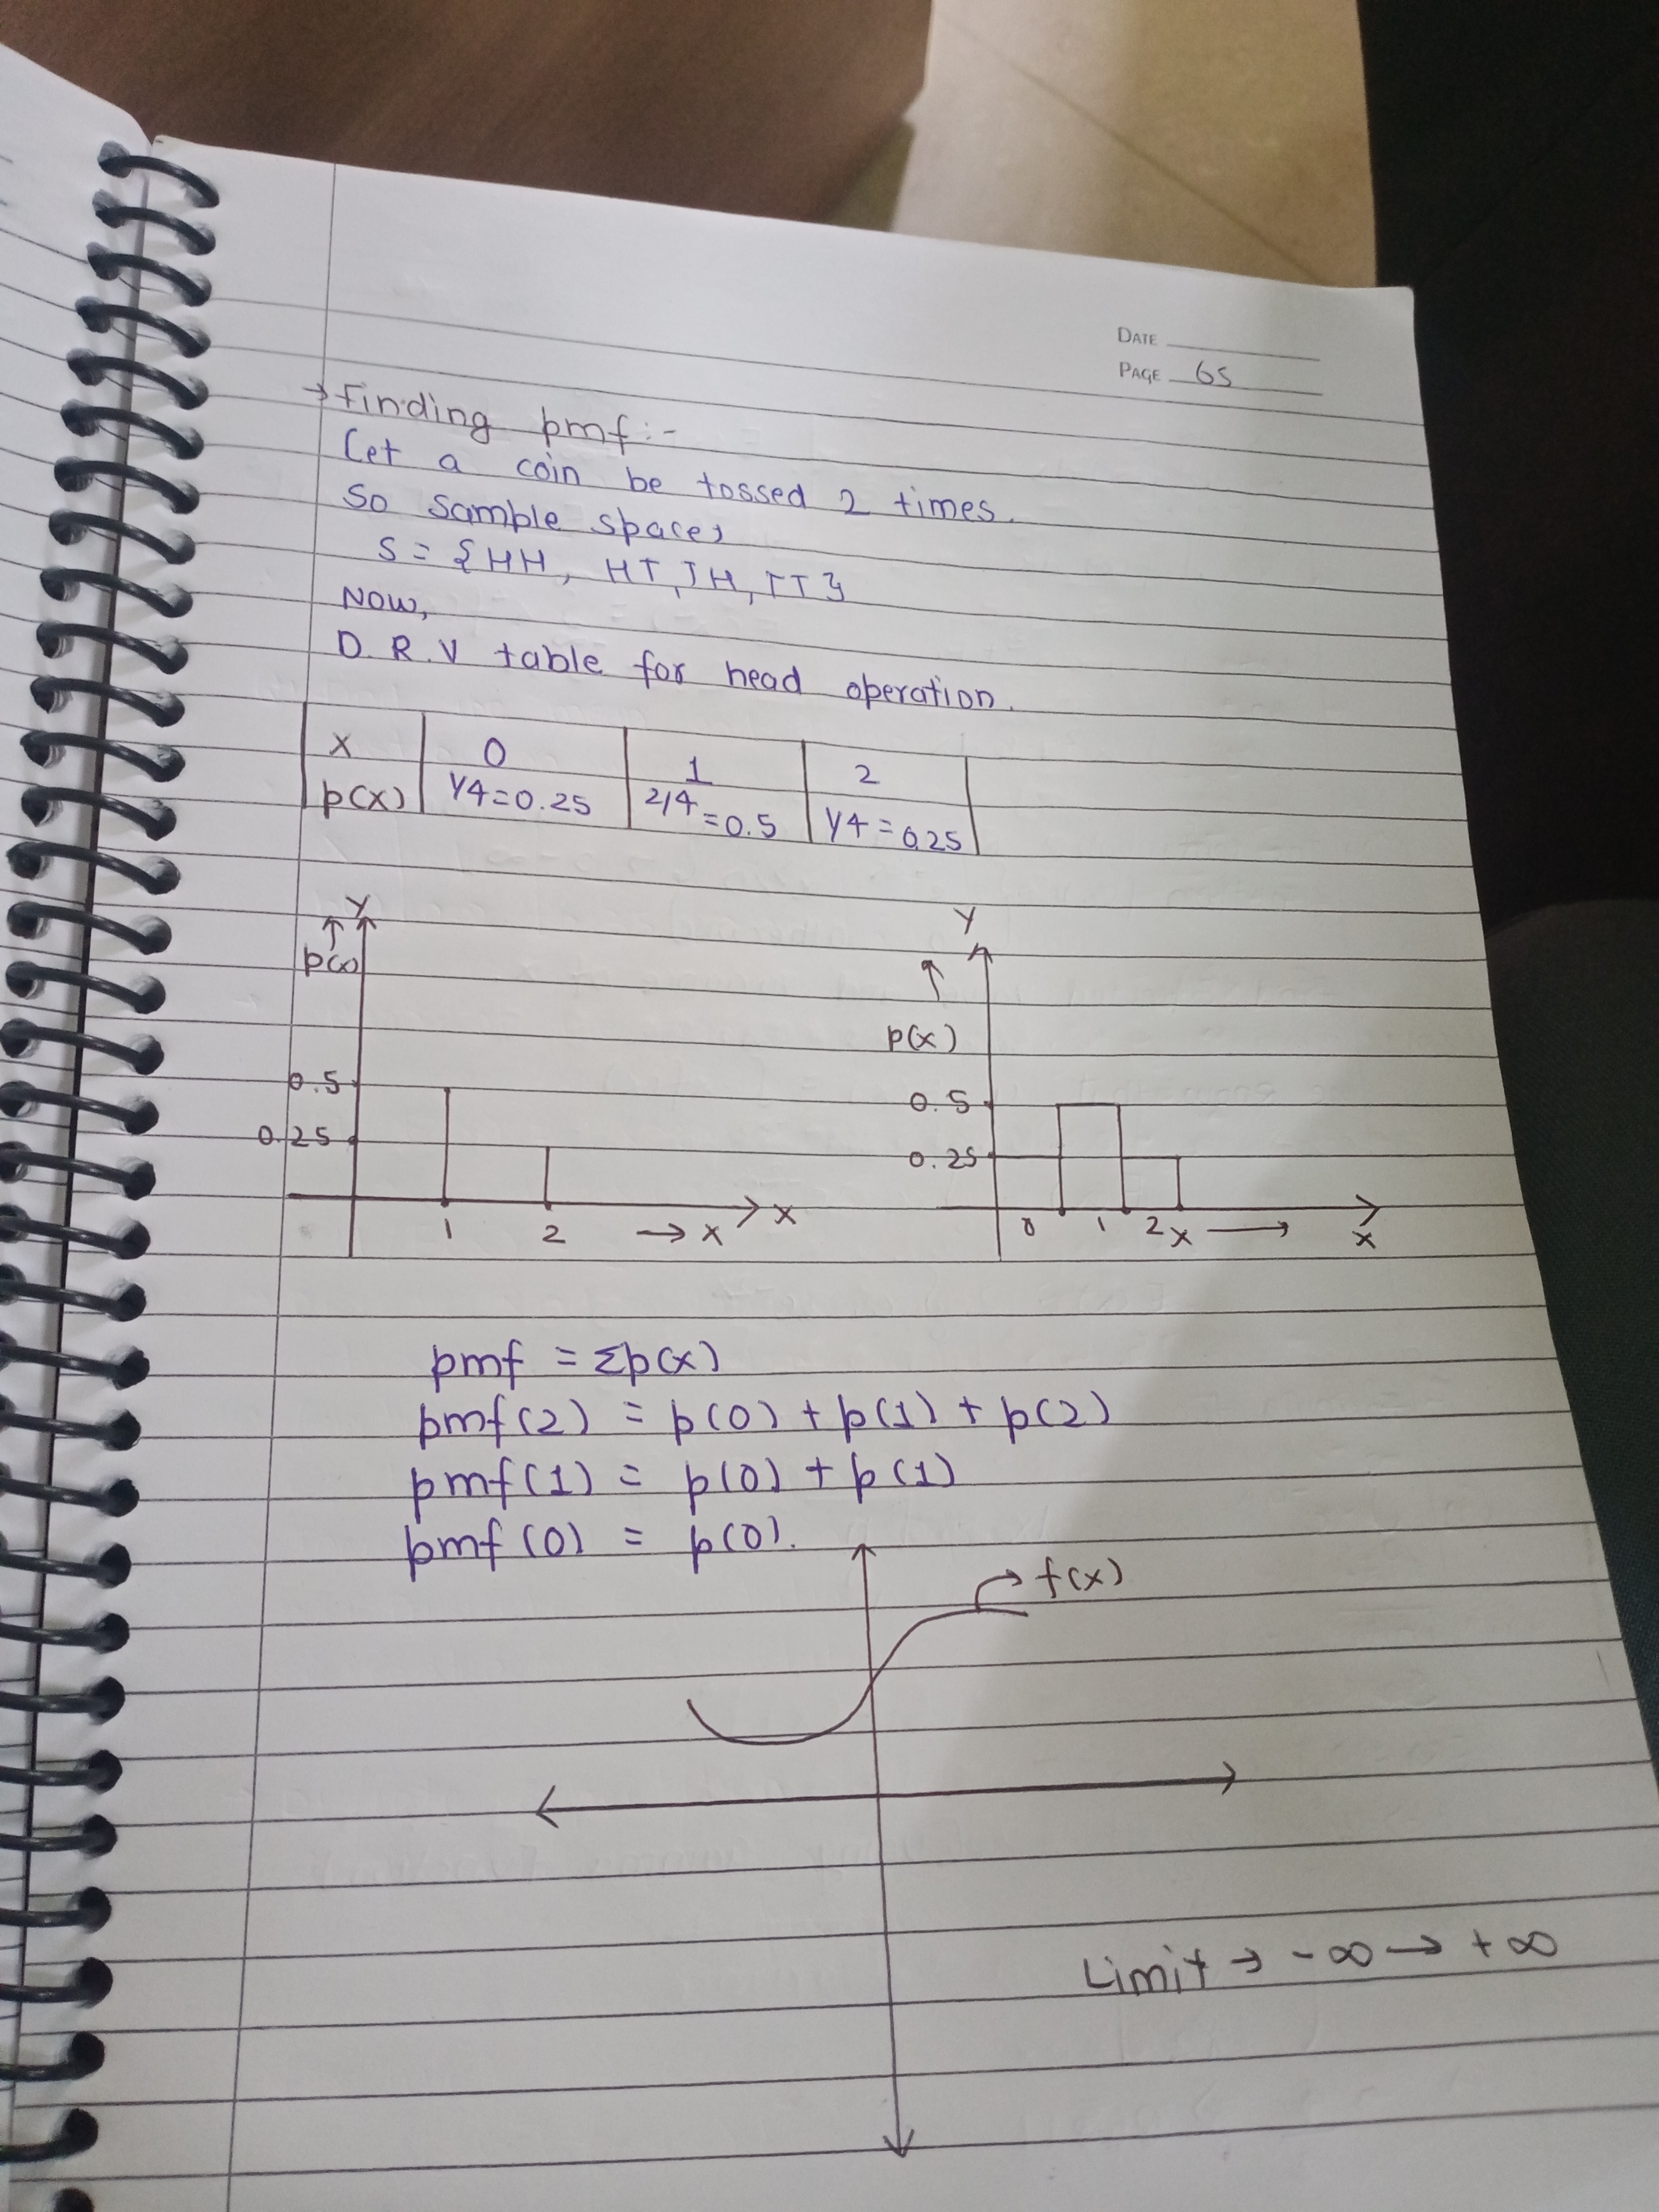 DATE
PAGE 65
→ Finding pmf :-
Let a coin be tossed 2 times.
So samble space,
S = {HH, HT, TH, TT}
Now,
D.R.V table for head operation.
X 0 1 2
p(x) 1/4=0.25 2/4=0.5 1/4=0.25
Y
↑
p(x)
0.5
0.25
1 2 → x X
Y
↑
p(x)
0.5
0.25
0 1 2 x → X
pmf = Σp(x)
pmf(2) = p(0) + p(1) + p(2)
pmf(1) = p(0) + p(1)
pmf(0) = p(0).
f(x)
Limit → -∞ → +∞